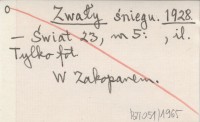 Zwały śniegu. 1928.
- Świat 23, nr 5: , il.
Tylko fot.
W Zakopanem.